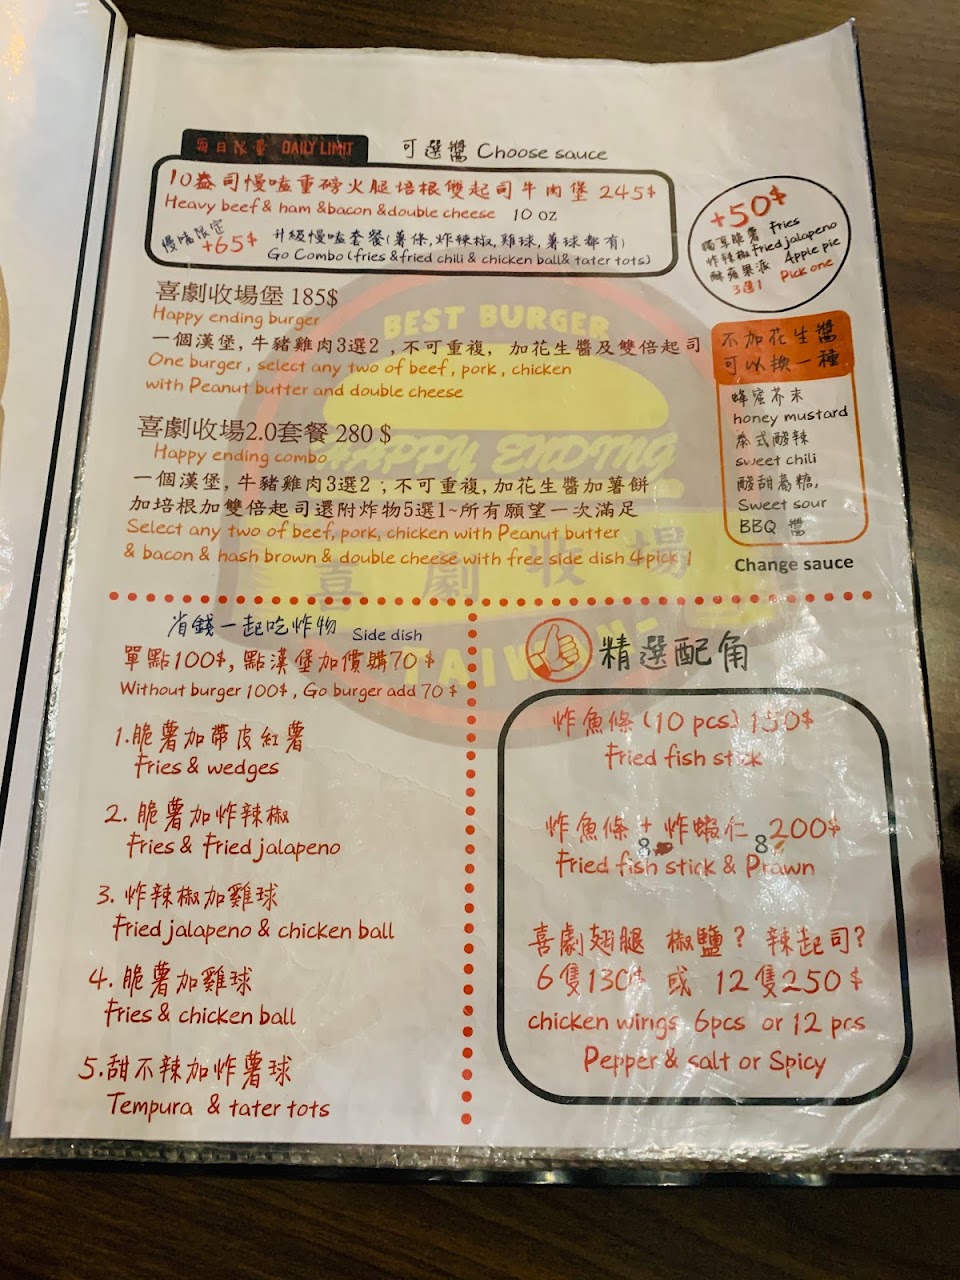 每日限量 DAILY LIMIT
可選醬 Choose sauce
10盎司慢嗑重磅火腿培根雙起司牛肉堡 245$
Heavy beef & ham &bacon &double cheese 10 oz
慢嗑限定
+65$
升級慢嗑套餐(薯條,炸辣椒,雞球,薯球都有)
Go Combo (fries &fried chili & chicken ball& tater tots)
+50$
獨享脆薯 Fries
炸辣椒 Fried jalapeno
酥蘋果派 Apple pie
3選1 Pick one
喜劇收場堡 185$
Happy ending burger
一個漢堡, 牛豬雞肉3選2 , 不可重複, 加花生醬及雙倍起司
One burger , select any two of beef , pork , chicken
with Peanut butter and double cheese
喜劇收場2.0套餐 280 $
Happy ending combo
一個漢堡, 牛豬雞肉3選2 , 不可重複, 加花生醬加薯餅
加培根加雙倍起司還附炸物5選1~所有願望一次滿足
Select any two of beef, pork, chicken with Peanut butter
& bacon & hash brown & double cheese with free side dish 4pick 1
不加花生醬
可以換一種
蜂蜜芥末
honey mustard
泰式酸辣
sweet chili
酸甜醬糖,
Sweet sour
BBQ 醬
Change sauce
BEST BURGER
HAPPY ENDING
喜劇收場
TAIWAN
省錢一起吃炸物 Side dish
單點100$, 點漢堡加價購70 $
Without burger 100$ , Go burger add 70 $
1.脆薯加帶皮紅薯
Fries & wedges
2. 脆薯加炸辣椒
Fries & Fried jalapeno
3. 炸辣椒加雞球
Fried jalapeno & chicken ball
4. 脆薯加雞球
Fries & chicken ball
5.甜不辣加炸薯球
Tempura & tater tots
精選配角
炸魚條 (10 pcs) 150$
Fried fish stick
炸魚條 + 炸蝦仁 200$
8 8
Fried fish stick & Prawn
喜劇翅腿 椒鹽? 辣起司?
6隻130$ 或 12隻250$
chicken wings 6pcs or 12 pcs
Pepper & salt or Spicy